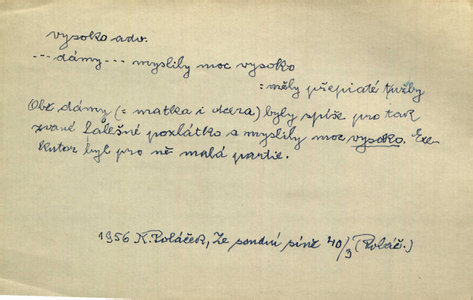 vysoko adv.
--- dámy --- myslily moc vysoko
= měly přepjaté tužby
Obě dámy (= matka i dcera) byly spíše pro tak
zvané šalešné pozlátko a myslily moc vysoko. Exe-
kutor byl pro ně malá partie.
1956 K. Poláček, Ze soudní síně 40/3 (Poláč.)